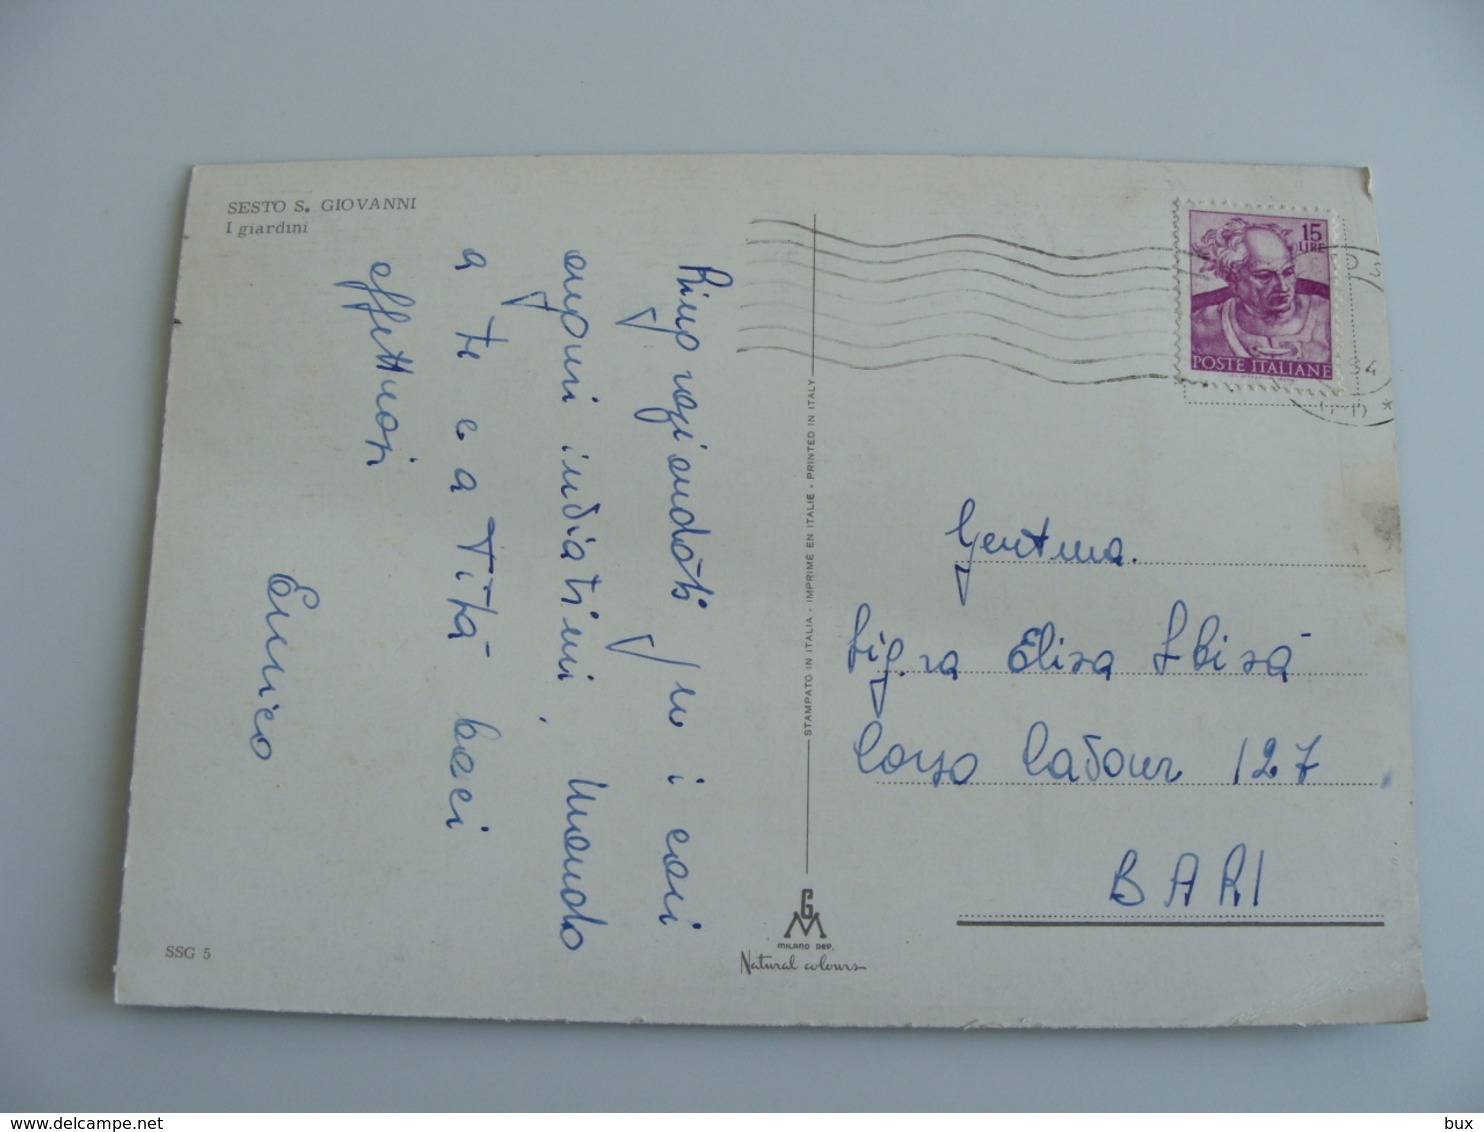 SESTO S. GIOVANNI
I giardini
Ringraziandoti per i cari
auguri inviatimi, mando
a te e a Tità baci
affettuosi
Enrico
SSG 5
STAMPATO IN ITALIA - IMPRIME EN ITALIE - PRINTED IN ITALY
GM
MILANO DEP.
Natural colours
15
LIRE
POSTE ITALIANE
Gent.ma
Sig.ra Elisa Sbisà
Corso Cavour 127
BARI
bux